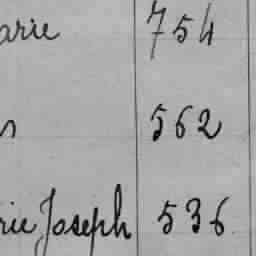 arie 754
s 562
rie Joseph 536